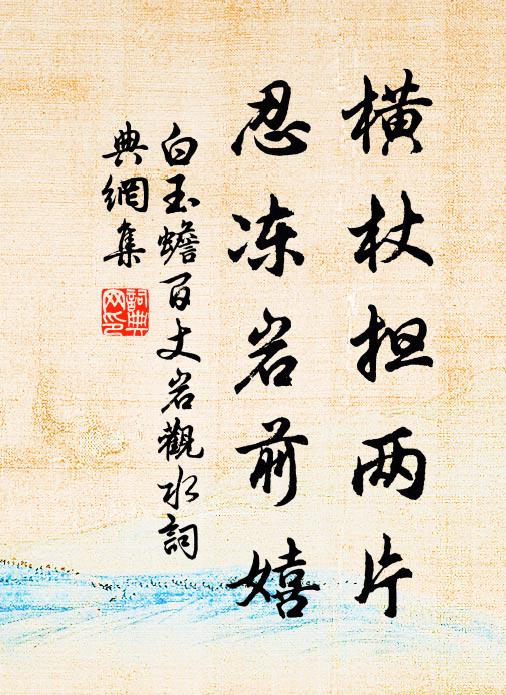 横杖担两片
忍冻岩前嬉
白玉蟾百丈岩觀水詞
典網集
詞典
网印